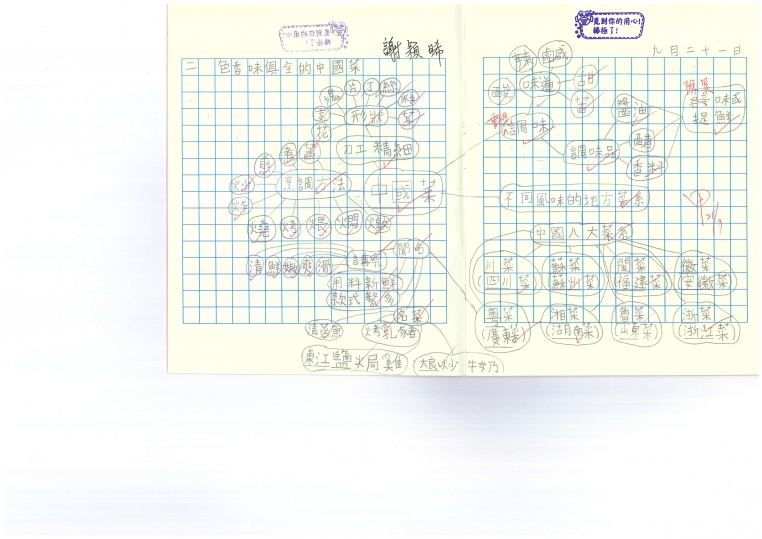 見到你的用心!
棒極了!
謝穎晞
九月二十一日
二 色香味俱全的中國菜
片 丁 絲
粒
形狀
茸
花
刀工精細
煮
炒
炸
烹調方法
燒 烤 煨 燜 燉
中國菜
辣 鹹
酸 味道 甜
苦
調味
醬油
調味品
醋
香料
味或
提鮮
不同風味的地方菜系
中國八大菜系
川菜
四川菜
蘇菜
蘇州菜
閩菜
福建菜
徽菜
安徽菜
粵菜
(廣東菜)
湘菜
(湖南菜)
魯菜
(山東菜)
浙菜
(浙江菜)
清 鮮 嫩 爽 滑
講究
用料新鮮
款式繁多
名菜
清蒸魚
烤乳豬
東江鹽焗雞
大良炒牛奶